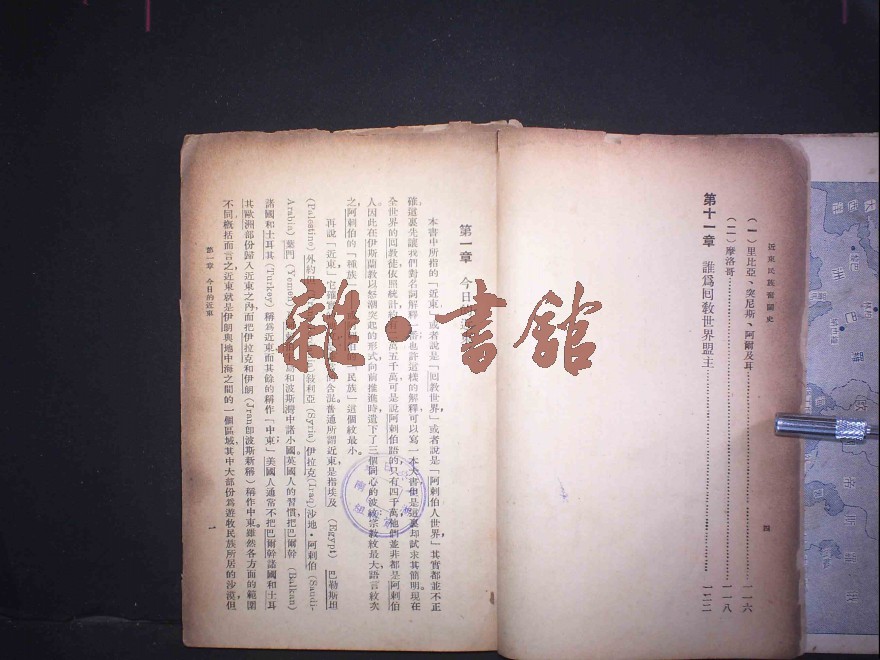 近東民族奮鬭史
(一)里比亞、突尼斯、阿爾及耳……一一六
(二)摩洛哥……一一八
第十一章 誰爲回教世界盟主……一二二
四
第一章 今日
本書中所指的「近東」或者說是「回教世界」或者說是「阿剌伯人世界」其實都並不正
確這裏先讓我們對名詞解釋一番也許這樣的解釋可以寫一本大書但是這裏却試求其簡明。現在
全世界的回教徒依照統計約有 萬五千萬可是說阿剌伯語的只有四千萬他們並非都是阿剌伯
人。因此在伊斯蘭教以怒潮突起的形式向前推進時遺下了三個同心的波紋宗教紋最大語言紋次
之阿剌伯的「種族」 「民族」這個紋最小。
再說「近東」它確實 的含混普通所謂近東是指埃及(Egypt)巴勒斯坦
(Palestine)外約但 叙利亞(Syria)伊拉克(Iraq)沙地·阿剌伯(Saudi-
Arabia)葉門(Yemen) 島和波斯灣中諸小國。英國人的習慣把巴爾幹(Balkan)
諸國和土耳其(Turkey)稱爲近東而其餘的稱作「中東」美國人通常不把巴爾幹諸國和土耳
其歐洲部份歸入近東之內而把伊拉克和伊朗(Iran卽波斯新稱)稱作中東。雖然各方面的範圍
不同概括而言之近東就是伊朗與地中海之間的一個區域其中大部份爲遊牧民族所居的沙漠但
第一章 今日的近東
一
雜·書館